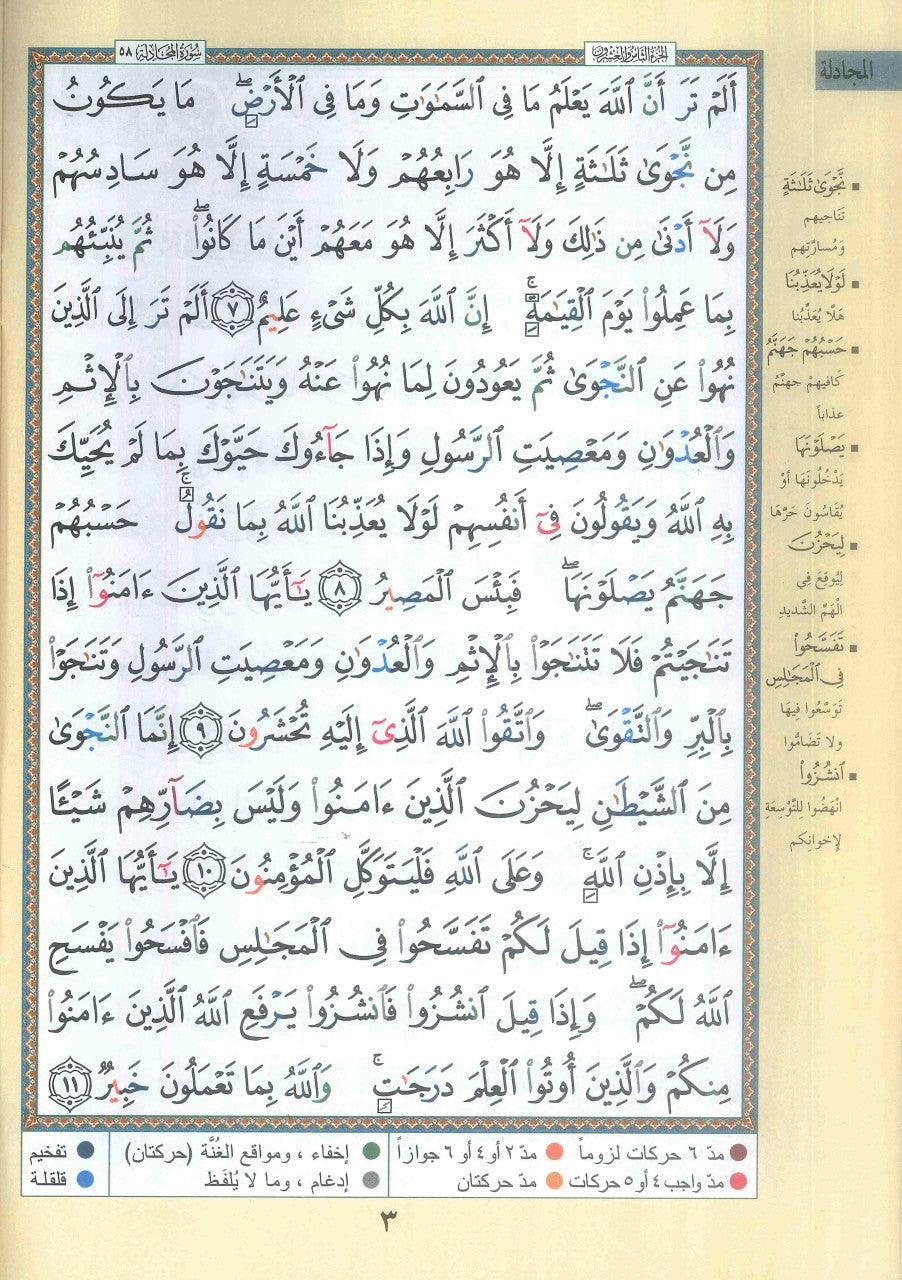 الجزء الثامن والعشرون
سُورَةُ المُجَادلة ٥٨
المجادلة
أَلَمۡ تَرَ أَنَّ ٱللَّهَ يَعۡلَمُ مَا فِى ٱلسَّمَٰوَٰتِ وَمَا فِى ٱلۡأَرۡضِۖ مَا يَكُونُ
مِن نَّجۡوَىٰ ثَلَٰثَةٍ إِلَّا هُوَ رَابِعُهُمۡ وَلَا خَمۡسَةٍ إِلَّا هُوَ سَادِسُهُمۡ
وَلَآ أَدۡنَىٰ مِن ذَٰلِكَ وَلَآ أَكۡثَرَ إِلَّا هُوَ مَعَهُمۡ أَيۡنَ مَا كَانُوا۟ۖ ثُمَّ يُنَبِّئُهُم
بِمَا عَمِلُوا۟ يَوۡمَ ٱلۡقِيَٰمَةِۚ إِنَّ ٱللَّهَ بِكُلِّ شَىۡءٍ عَلِيمٌ ٧ أَلَمۡ تَرَ إِلَى ٱلَّذِينَ
نُهُوا۟ عَنِ ٱلنَّجۡوَىٰ ثُمَّ يَعُودُونَ لِمَا نُهُوا۟ عَنۡهُ وَيَتَنَٰجَوۡنَ بِٱلۡإِثۡمِ
وَٱلۡعُدۡوَٰنِ وَمَعۡصِيَتِ ٱلرَّسُولِ وَإِذَا جَآءُوكَ حَيَّوۡكَ بِمَا لَمۡ يُحَيِّكَ
بِهِ ٱللَّهُ وَيَقُولُونَ فِىٓ أَنفُسِهِمۡ لَوۡلَا يُعَذِّبُنَا ٱللَّهُ بِمَا نَقُولُۚ حَسۡبُهُمۡ
جَهَنَّمُ يَصۡلَوۡنَهَاۖ فَبِئۡسَ ٱلۡمَصِيرُ ٨ يَٰٓأَيُّهَا ٱلَّذِينَ ءَامَنُوٓا۟ إِذَا
تَنَٰجَيۡتُمۡ فَلَا تَتَنَٰجَوۡا۟ بِٱلۡإِثۡمِ وَٱلۡعُدۡوَٰنِ وَمَعۡصِيَتِ ٱلرَّسُولِ وَتَنَٰجَوۡا۟
بِٱلۡبِرِّ وَٱلتَّقۡوَىٰۖ وَٱتَّقُوا۟ ٱللَّهَ ٱلَّذِىٓ إِلَيۡهِ تُحۡشَرُونَ ٩ إِنَّمَا ٱلنَّجۡوَىٰ
مِنَ ٱلشَّيۡطَٰنِ لِيَحۡزُنَ ٱلَّذِينَ ءَامَنُوا۟ وَلَيۡسَ بِضَآرِّهِمۡ شَيۡـًٔا
إِلَّا بِإِذۡنِ ٱللَّهِۚ وَعَلَى ٱللَّهِ فَلۡيَتَوَكَّلِ ٱلۡمُؤۡمِنُونَ ١٠ يَٰٓأَيُّهَا ٱلَّذِينَ
ءَامَنُوٓا۟ إِذَا قِيلَ لَكُمۡ تَفَسَّحُوا۟ فِى ٱلۡمَجَٰلِسِ فَٱفۡسَحُوا۟ يَفۡسَحِ
ٱللَّهُ لَكُمۡۖ وَإِذَا قِيلَ ٱنشُزُوا۟ فَٱنشُزُوا۟ يَرۡفَعِ ٱللَّهُ ٱلَّذِينَ ءَامَنُوا۟
مِنكُمۡ وَٱلَّذِينَ أُوتُوا۟ ٱلۡعِلۡمَ دَرَجَٰتٍۚ وَٱللَّهُ بِمَا تَعۡمَلُونَ خَبِيرٌ ١١
نَّجۡوَىٰ ثَلَٰثَةٍ
تَنَاجِيهم
وَمُسارَّتِهم
لَوۡلَا يُعَذِّبُنَا
هَلَّا يُعَذِّبُنا
حَسۡبُهُمۡ جَهَنَّمُ
كَافيهِمْ جهنَّمُ
عذاباً
يَصۡلَوۡنَهَا
يَدْخُلُونَهَا أوْ
يُقَاسُونَ حَرَّهَا
لِيَحۡزُنَ
لِيُوقِعَ فِي
الْهَمِّ الشَّدِيدِ
تَفَسَّحُوا۟
فِى ٱلۡمَجَٰلِسِ
تَوَسَّعُوا فِيهَا
ولا تَضَامُّوا
ٱنشُزُوا۟
انْهَضُوا لِلتَّوْسِعَةِ
لإخوانِكم
مدّ ٦ حركات لزوماً
مدّ ٢ أو ٤ أو ٦ جوازاً
إخفاء ، ومواقع الغُنَّة (حركتان)
تفخيم
مدّ واجب ٤ أو ٥ حركات
مدّ حركتان
إدغام ، وما لا يُلفَظ
قلقلة
٣